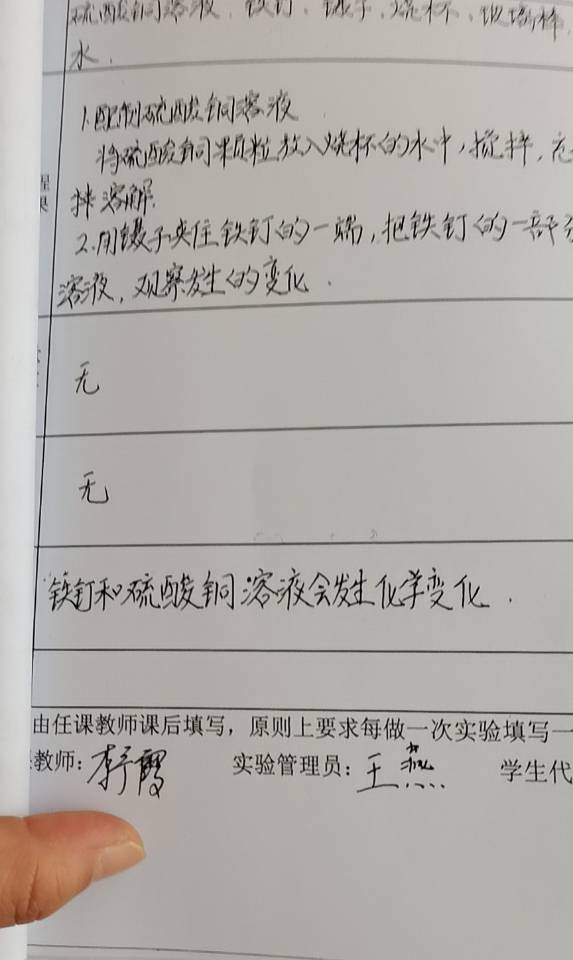 硫酸铜溶液、铁钉、镊子、烧杯、玻璃棒,
水.
1.配制硫酸铜溶液
将硫酸铜颗粒放入烧杯的水中,搅拌,充
拌溶解.
2.用镊子夹住铁钉的一端,把铁钉的一部分
溶液,观察发生的变化.
无
无
铁钉和硫酸铜溶液会发生化学变化.
由任课教师课后填写,原则上要求每做一次实验填写一
教师:李霞 实验管理员:王燕 学生代